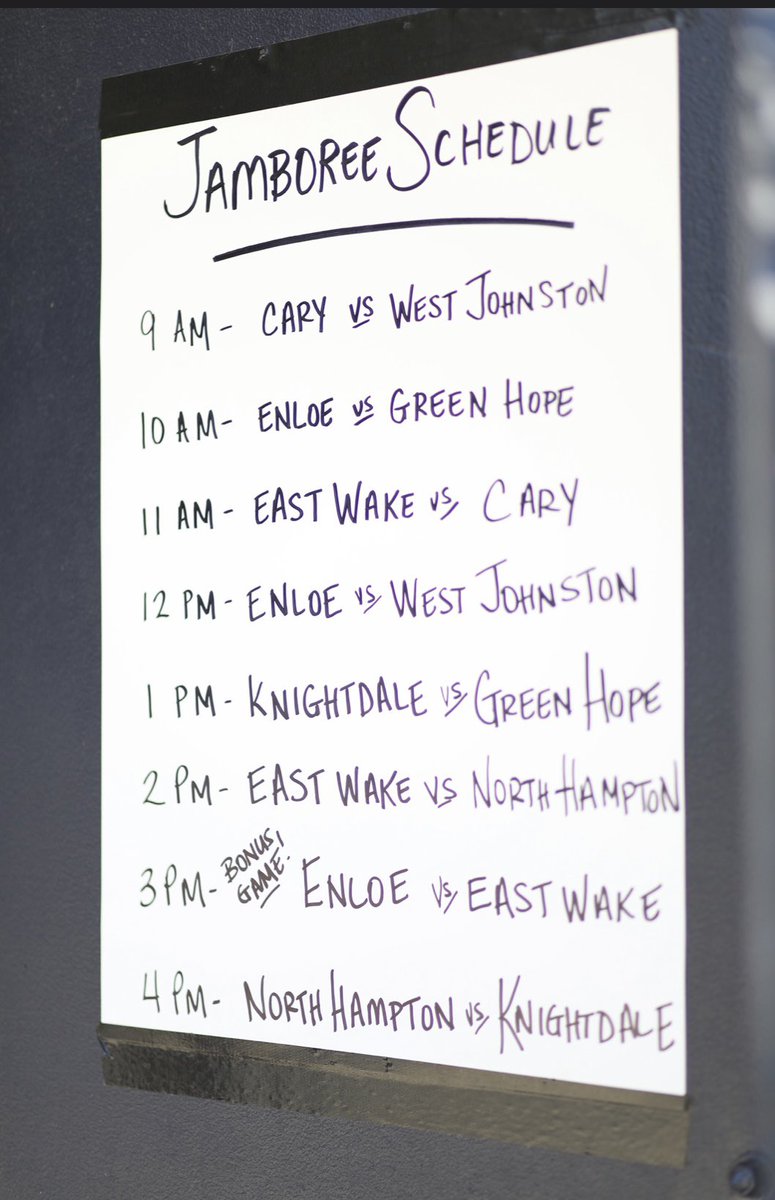 JAMBOREE SCHEDULE
9 AM - CARY VS WEST JOHNSTON
10 AM - ENLOE VS GREEN HOPE
11 AM - EAST WAKE VS CARY
12 PM - ENLOE VS WEST JOHNSTON
1 PM - KNIGHTDALE VS GREEN HOPE
2 PM - EAST WAKE VS NORTH HAMPTON
3 PM - BONUS! GAME. ENLOE VS EAST WAKE
4 PM - NORTH HAMPTON VS. KNIGHTDALE